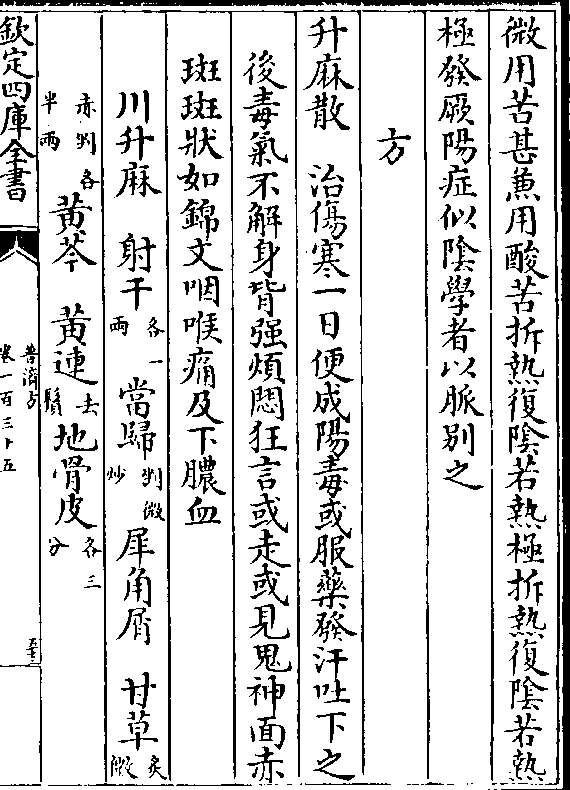 微用苦甚兼用酸苦折熱復陰若熱極折熱復陰若熱
極發厥陽症似陰學者以脈别之
方
升麻散　治傷寒一日便成陽毒或服藥發汗吐下之
後毒氣不解身背强煩悶狂言或走或見鬼神面赤
斑斑狀如錦文咽喉痛及下膿血
川升麻　射干各一兩　當歸剉微炒　犀角屑　甘草炙微
赤剉各半兩　黄芩　黄連去鬚　地骨皮各三分
欽定四庫全書
普濟方
卷一百三十五